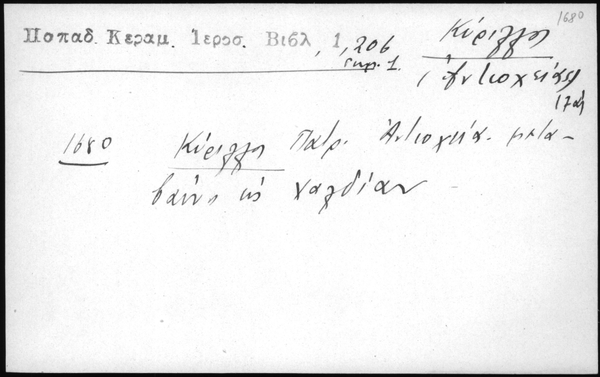 1680
Ποπαδ. Κεραμ. Ἱεροσ. Βιβλ, 1, 206
σημ. 1.
Κύριλλος
Ἀντιοχείας
17ος
1680 Κύριλλος Πατρ. Ἀντιοχείας μετα-
βαίνει εἰς Χαλδίαν